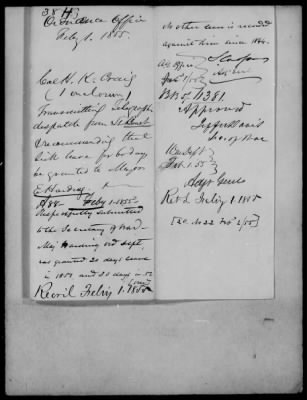 38 H
Ordnance Office
Feby 1. 1855.
Col H. K. Craig
(1 enclosure)
Transmitting Telegraphic
despatch from
recommending that
sick leave for 60 days
be granted to Major
E Harding.
A88 Feby 1. 1855
Respectfully submitted
to the Secretary of War
Maj Harding Ord Dept.
was granted 20 days leave
in 1851 and 30 days in 52
Rec'd Feby 1. 1855
No other leave is recorded
against him since 184
S Cooper
Adj Office
Feby 1/55
B 381
Approved
Jeffn Davis
Sec of War
War Dept
Feb. 1. 55
Adjt Genl
Ret'd Feby 1. 1855